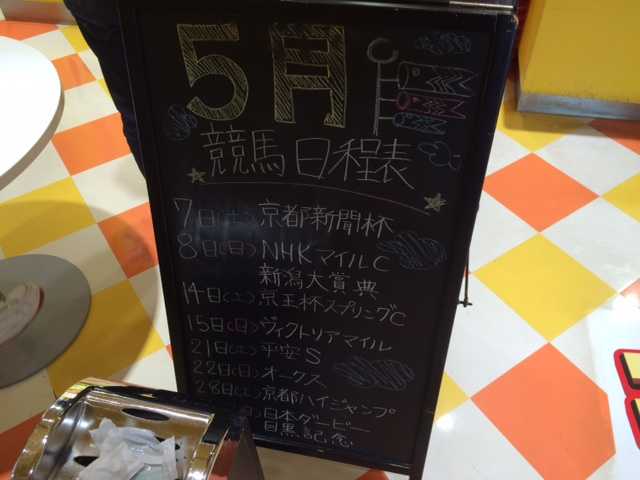 5月
競馬日程表
7日(土)京都新聞杯
8日(日)NHKマイルC
新潟大賞典
14日(土)京王杯スプリングC
15日(日)ヴィクトリアマイル
21日(土)平安S
22日(日)オークス
28日(土)京都ハイジャンプ
日)日本ダービー
目黒記念